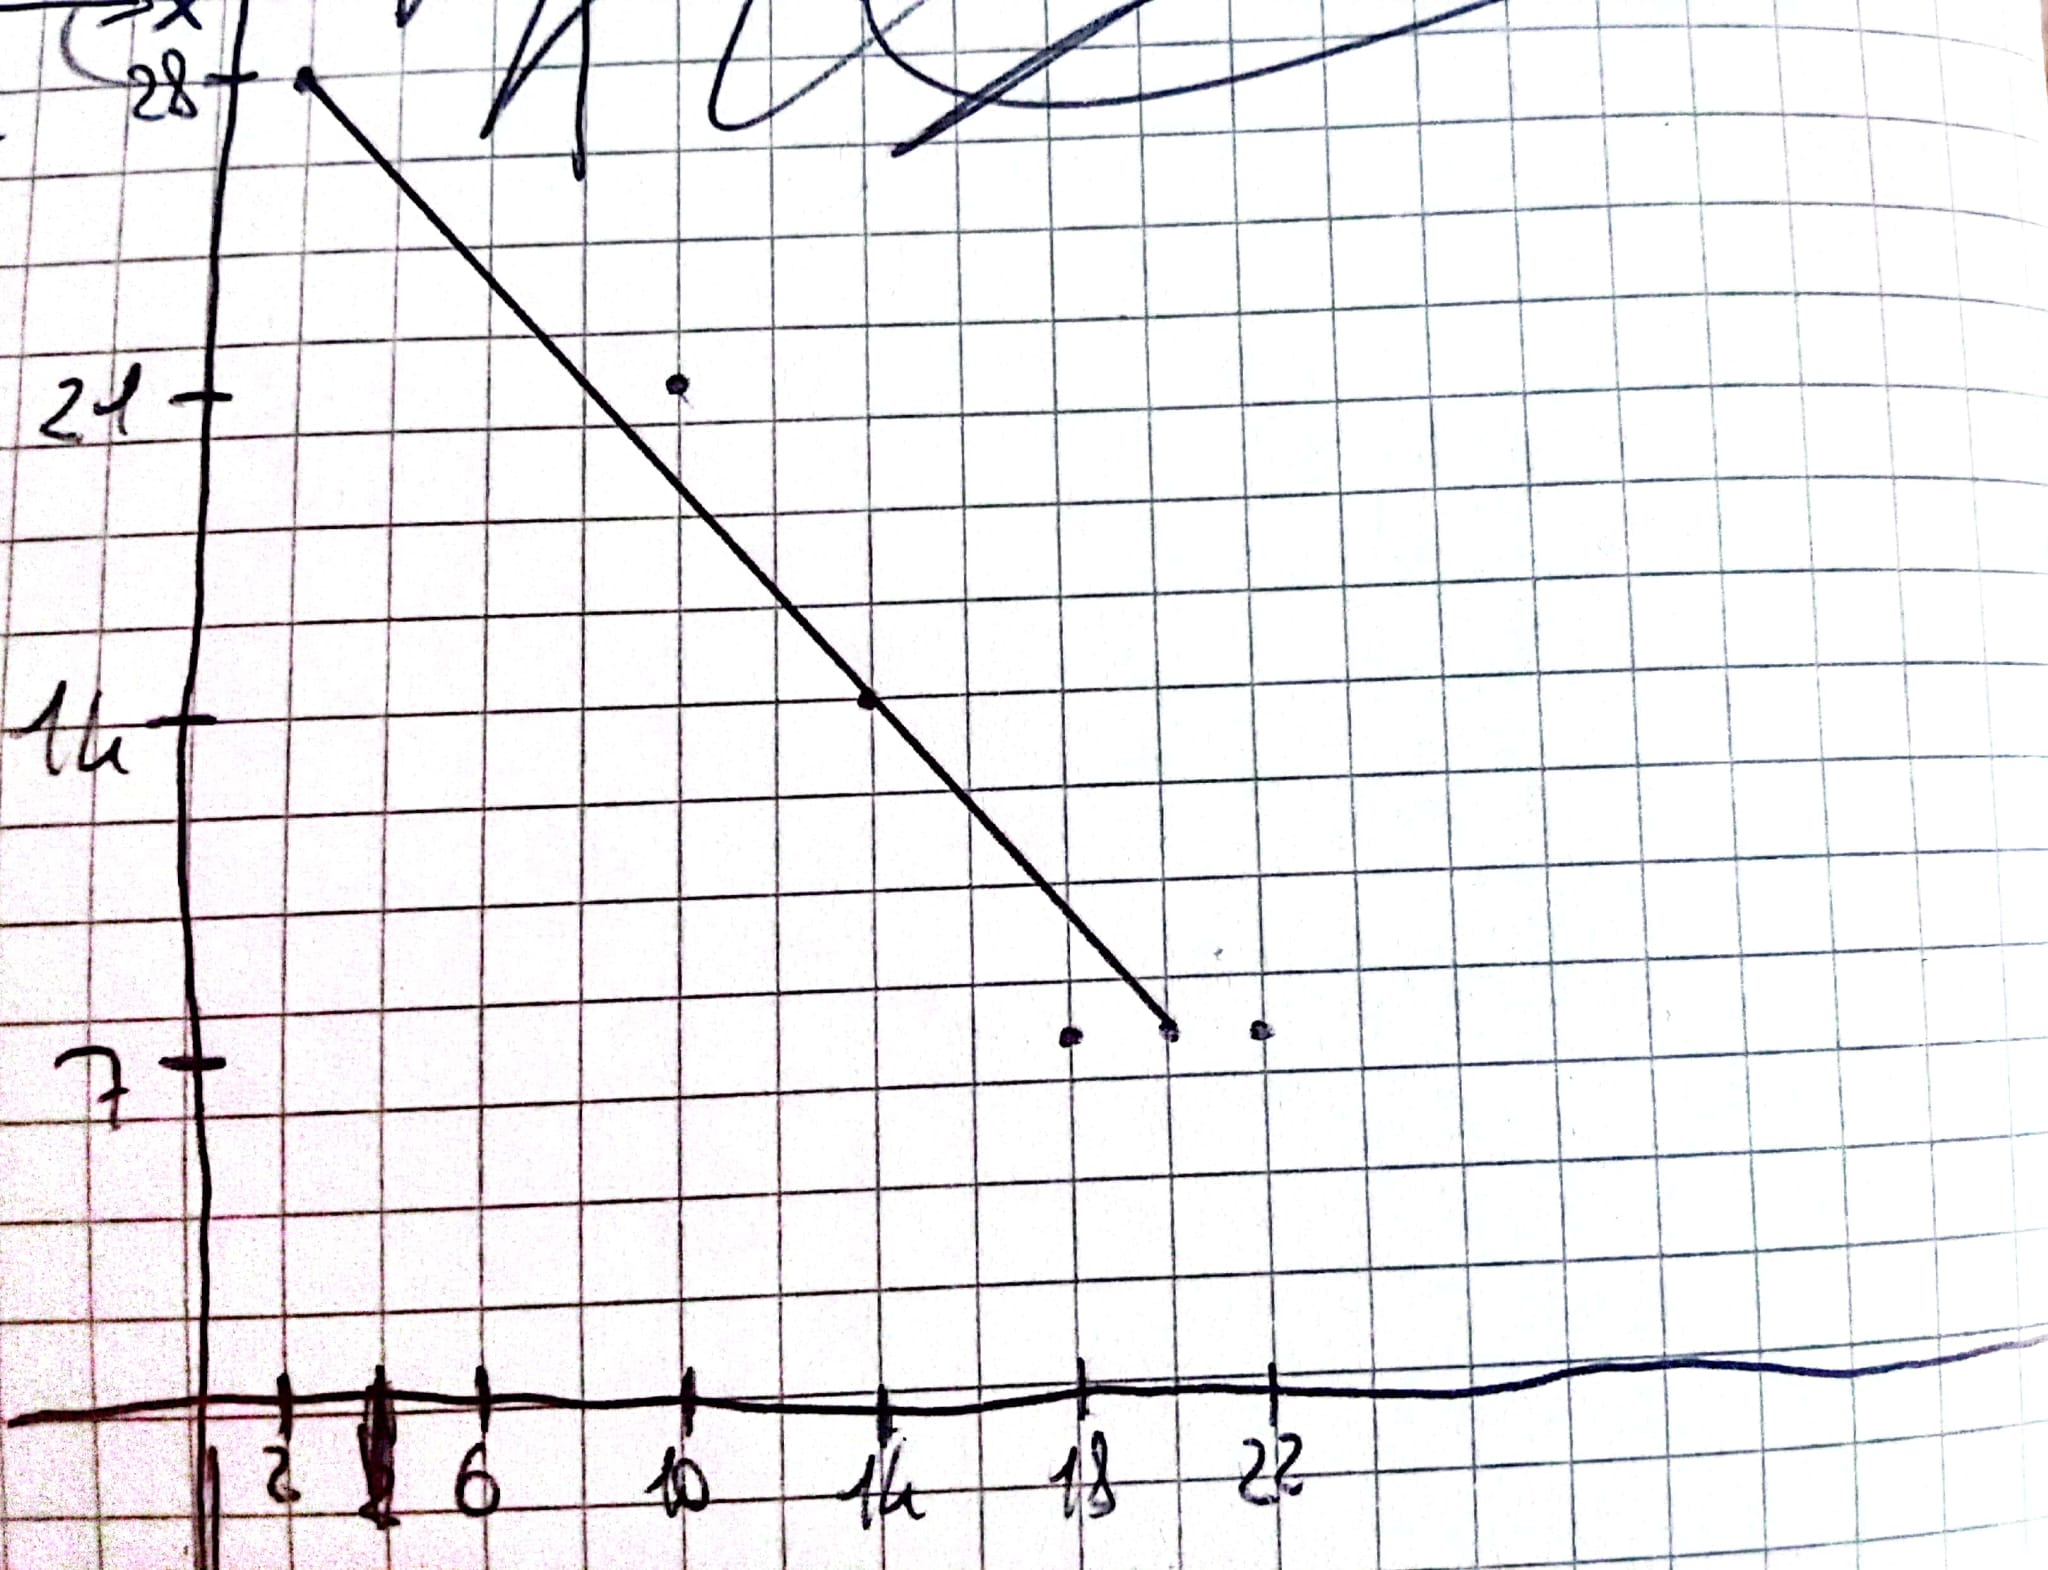 x
28
21
14
7
2 6 10 14 18 22